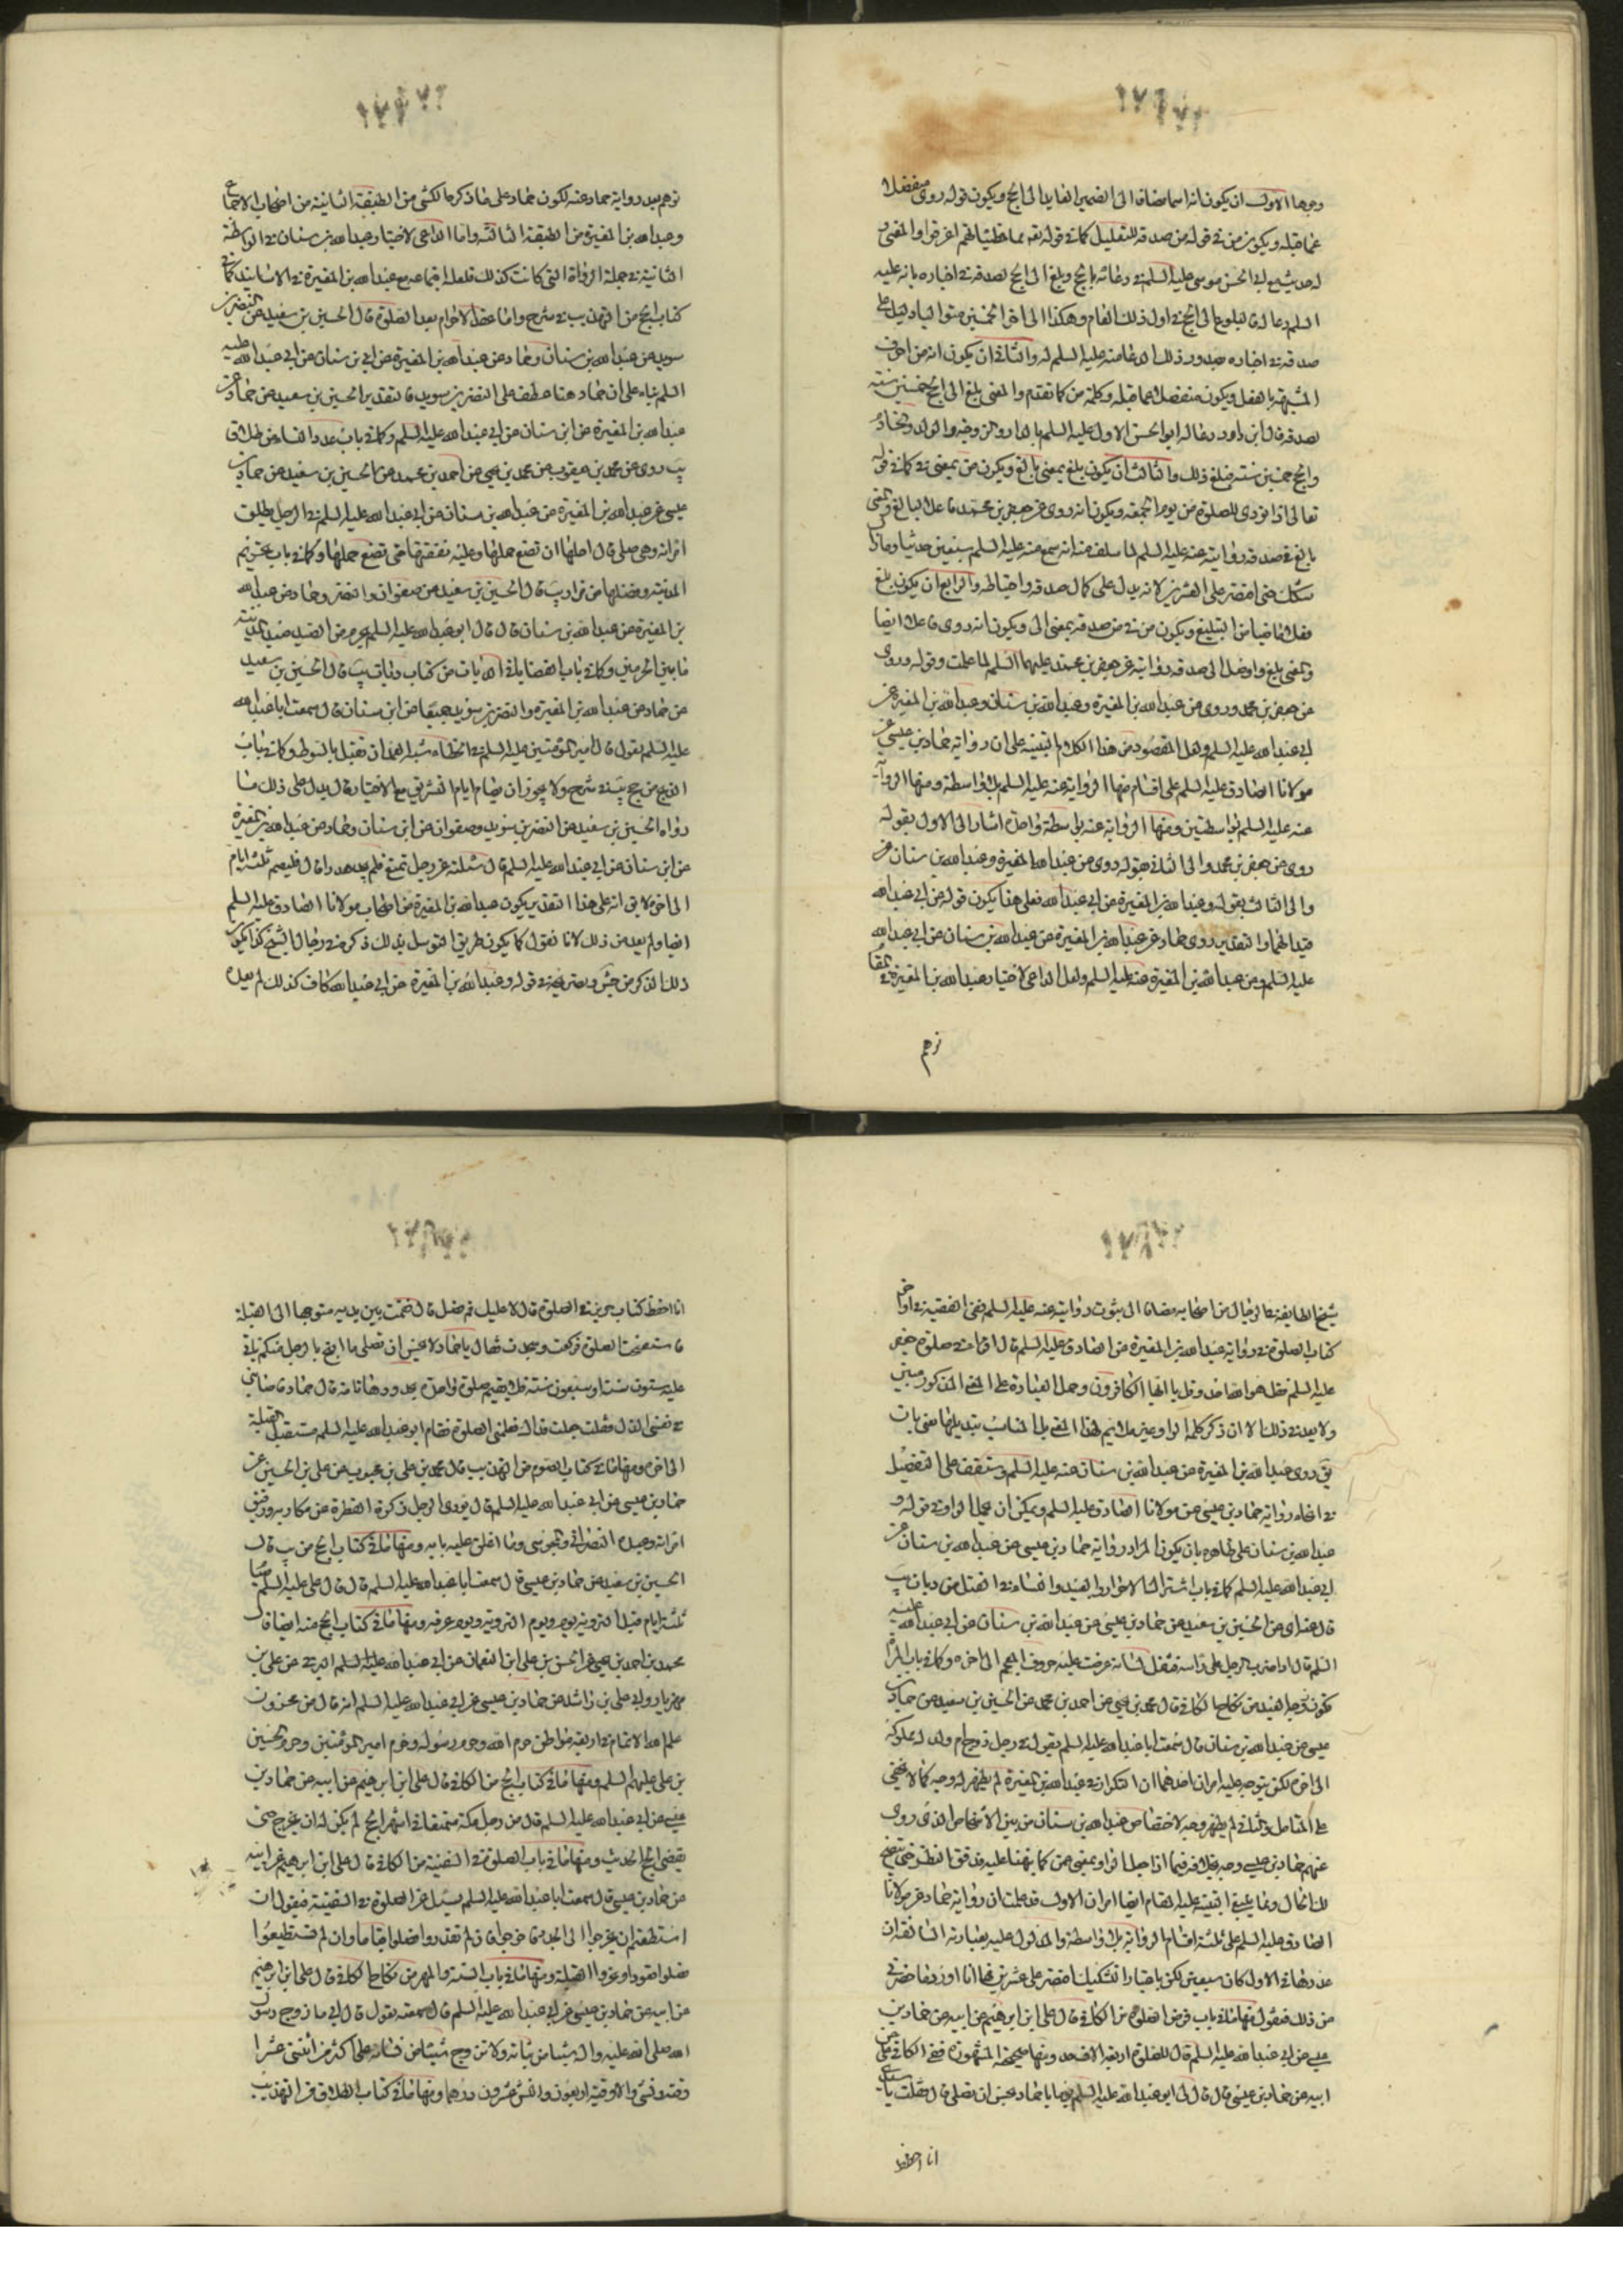 وجوها الاول ان يكون انه اسما مضافا الى الضمير العايد الى الحج ويكون قوله روى منفصلا
عما قبله ويكون من في قوله من صدقه للتعليل كما في قوله تعالى مما خطيئاتهم اغرقوا والمعنى
ابي الحسن موسى عليه السلم في دعائه بالحج وبلغ الى الحج لصدقه في اخباره بانه عليه
السلم دعا له فبلوغه الى الحج في اول ذلك العام وهكذا الى اخر الخمسين
صدقه في اخباره بصدور ذلك الدعا منه عليه السلم له والثاني ان يكون انه من احرف
المشبهة بالفعل ويكون منفصلا عما قبله وكلمة من كما تقدم والمعنى بلغ الى الحج خمسين سنة
لصدقه قال ابن داود دعا له ابو الحسن الاول عليه السلم بالدار والزوجة والولد والخادم
والحج خمسين سنة فبلغ ذلك والثالث ان يكون بلغ بمعنى بالغ ويكون من بمعنى في كما في قوله
تعالى اذا نودي للصلوة من يوم الجمعة ويكون انه روى عن جعفر بن محمد فاعلا لبالغ والمعنى
بالغ في صدقه روايته عنه عليه السلم لما سلف منه انه سمع منه عليه السلم سبعين حديثا وما زال
يشكك حتى اقتصر على العشرين لانه يدل على كمال صدقه واحتياطه والرابع ان يكون بلغ
فعلا ماضيا من التبليغ ويكون من في من صدقه بمعنى الى ويكون انه روى فاعلا ايضا
والمعنى بلغ واوصل الى صدقه روايته عن جعفر بن محمد عليهما السلم لما علمت وقوله وروى
عن جعفر بن محمد وروى عن عبد الله بن المغيرة وعبد الله بن سنان وعبد الله بن المغيرة عن
ابي عبد الله عليه السلم ولعل المقصود من هذا الكلام التنبيه على ان رواية حماد بن عيسى عن
مولانا الصادق عليه السلم على اقسام منها الرواية عنه عليه السلم بلا واسطة ومنها الرواية
عنه عليه السلم بواسطتين ومنها الرواية عنه بواسطة واحدة اشار الى الاول بقوله
روى عن جعفر بن محمد والى الثاني بقوله روى عن عبد الله المغيرة وعبد الله بن سنان عن
والى الثالث بقوله وعبد الله بن المغيرة عن ابي عبد الله فعلى هذا يكون قوله عن ابي عبد الله
قيدا لهما والتقدير روى حماد عن عبد الله بن المغيرة عن عبد الله بن سنان عن ابي عبد الله
عليه السلم وعن عبد الله بن المغيرة عنه عليه السلم ولعل الداعي لاختيار عبد الله بن المغيرة في المقام
توهم
توهم بعد رواية حماد عنه لكون حماد على ما ذكره الكشي من الطبقة الثانية من اصحاب الاجماع
وعبد الله بن المغيرة من الطبقة الثالثة واما الداعي لاختيار عبد الله بن سنان في الواسطة
الثانية في جملة الرواة التي كانت كذلك فلعله اجتماعه مع عبد الله بن المغيرة في الاسانيد كما في
كتاب الحج من التهذيب في شرح واما عقد الاحرام بعد الصلوة قال الحسين بن سعيد عن النضر بن
سويد عن عبد الله بن سنان وحماد عن عبد الله بن المغيرة عن ابن سنان عن ابي عبد الله عليه
السلم بناء على ان حماد هنا عطف على النضر بن سويد فالتقدير الحسين بن سعيد عن حماد عن
عبد الله بن المغيرة عن ابن سنان عن ابي عبد الله عليه السلم وكما في باب عدد النساء من طلاق
يب روى عن محمد بن يعقوب عن محمد بن يحيى عن احمد بن محمد عن الحسين بن سعيد عن حماد بن
عيسى عن عبد الله بن المغيرة عن عبد الله بن سنان عن ابي عبد الله عليه السلم في الرجل يطلق
امراته وهي حبلى قال اجلها ان تضع حملها وعليه نفقتها حتى تضع حملها وكما في باب تحريم
المدينة وفضلها من مزار يب قال الحسين بن سعيد عن صفوان والنضر وحماد عن عبد الله
بن المغيرة عن عبد الله بن سنان قال قال ابو عبد الله عليه السلم يحرم من الصيد صيد المدينة
ما بين الحرمين وكما في باب القضايا في الديات من كتاب ديات يب قال الحسين بن سعيد
عن حماد عن عبد الله بن المغيرة والنضر بن سويد جميعا عن ابن سنان قال سمعت ابا عبد الله
عليه السلم يقول قال امير المؤمنين عليه السلم في الخطاء شبه العمد ان تقتل بالسوط وكما في باب
الذبح من حج يب في شرح ولا يجوز ان يصام ايام التشريق مع الاختيار قال يدل على ذلك ما
رواه الحسين بن سعيد عن النضر بن سويد وصفوان عن ابن سنان وحماد عن عبد الله بن المغيرة
عن ابن سنان عن ابي عبد الله عليه السلم قال سئلته عن رجل تمتع فلم يجد هديا قال فليصم ثلثة ايام
الى اخره لا يق انه على هذا التقدير يكون عبد الله بن المغيرة من اصحاب مولانا الصادق عليه السلم
ايضا ولم يعد من ذلك لانا نقول كما يكون طريق التوسل بذلك ذكره في رجال الشيخ كذا يكون
ذلك الذكر من جش وتصريحه في قوله وعبد الله بن المغيرة عن ابي عبد الله كاف كذلك لم يعده
شيخ الطايفة في الرجال من اصحابه مضافا الى ثبوت روايته عنه عليه السلم ففي الفقيه في اواخر
كتاب الصلوة في رواية عبد الله بن المغيرة عن الصادق عليه السلم قال اقرا في صلوة جعفر
عليه السلم بقل هو الله احد وقل يا ايها الكافرون وحمل العبارة على المعنى المذكور مبني
ولا بعد في ذلك الا ان ذكر كلمة الواو غير ملايم لهذا المعنى بل المناسب تبديلها بمن بان
يق روى عبد الله بن المغيرة عن عبد الله بن سنان عنه عليه السلم وستقف على التفصيل
في انحاء رواية حماد بن عيسى عن مولانا الصادق عليه السلم ويمكن ان يحمل الواو في قوله و
عبد الله بن سنان على ظاهره بان يكون المراد رواية حماد بن عيسى عن عبد الله بن سنان عن
ابي عبد الله عليه السلم كما في باب اشتراك الاحرار والعبيد والنساء في القتل من ديات يب
عن الحسين بن سعيد عن حماد بن عيسى عن عبد الله بن سنان عن ابي عبد الله عليه
السلم قال اذا ضرب الرجل على راسه فثقل لسانه عرضت عليه حروف المعجم الى اخره وكما في باب المراة
تكون زوجة العبد من نكاح الكافي قال محمد بن يحيى عن احمد بن محمد عن الحسين بن سعيد عن حماد بن
عيسى عن عبد الله بن سنان قال سمعت ابا عبد الله عليه السلم يقول في رجل زوج ام ولد له مملوكه
الى اخره لكن يتوجه عليه امران احدهما ان التكرار في عبد الله بن المغيرة لم يظهر له وجه كما لا يخفى
على المتامل والثاني لم يظهر وجه لاختصاص عبد الله بن سنان من بين الاشخاص الذي روى
عنهم حماد بن عيسى وجه بخلافه فيما اذا جعل الواو بمعنى عن كما نبهنا عليه فدقق النظر حتى يتضح
لك الحال ومما ينبغي التنبيه عليه في المقام ايضا امران الاول قد علمت ان رواية حماد عن مولانا
الصادق عليه السلم على ثلثة اقسام الرواية بلا واسطة والمدلول عليه بعبارته السالفة ان
عددها في الاول كان سبعين لكن باعتبار التشكيك اقتصر على عشرين فها انا اورد ما حضرني
من ذلك فنقول منها ما في باب فرض الصلوة من الكافي قال علي ابن ابراهيم عن ابيه عن حماد بن
عيسى عن ابي عبد الله عليه السلم قال للصلوة اربعة الاف حد ومنها صحيحته المشهورة ففي الكافي علي عن
ابيه عن حماد بن عيسى قال قال لي ابو عبد الله عليه السلم يوما يا حماد تحسن ان تصلي قال فقلت يا سيدي
انا احفظ
انا احفظ كتاب حريز في الصلوة قال لا عليك قم فصل قال فقمت بين يديه متوجها الى القبلة
فاستفتحت الصلوة فركعت وسجدت فقال يا حماد لا تحسن ان تصلي ما اقبح بالرجل منكم ياتي
عليه ستون سنة او سبعون سنة فلا يقيم صلوة واحدة بحدودها تامة قال حماد فاصابني
في نفسي الذل فقلت جعلت فداك فعلمني الصلوة فقام ابو عبد الله عليه السلم مستقبل القبلة
الى اخره ومنها ما في كتاب الصوم من التهذيب قال محمد بن علي بن محبوب عن علي بن الحسين عن
حماد بن عيسى عن ابي عبد الله عليه السلم قال يؤدي الرجل زكوة الفطرة عن مكاتبه ورقيق
امراته وعبده النصراني والمجوسي وما اغلق عليه بابه ومنها ما في كتاب الحج من يب قال
الحسين بن سعيد عن حماد بن عيسى قال سمعت ابا عبد الله عليه السلم قال قال علي عليه السلم صيام
ثلثة ايام قبل التروية بيوم ويوم التروية ويوم عرفة ومنها ما في كتاب الحج منه ايضا قال
محمد بن احمد بن يحيى عن الحسن بن علي ابن النعمان عن ابي عبد الله عليه السلم البرقي عن علي بن
مهزيار وابي علي بن راشد عن حماد بن عيسى عن ابي عبد الله عليه السلم انه قال من مخزون
علم الله الاتمام في اربعة مواطن حرم الله وحرم رسوله وحرم امير المؤمنين وحرم الحسين
بن علي عليهم السلم ومنها ما في كتاب الحج من الكافي قال علي ابن ابراهيم عن ابيه عن حماد بن
عيسى عن ابي عبد الله عليه السلم قال من دخل مكة متمتعا في اشهر الحج لم يكن له ان يخرج حتى
يقضي الحج الحديث ومنها ما في باب الصلوة في السفينة من الكافي قال علي ابن ابراهيم عن ابيه
عن حماد بن عيسى قال سمعت ابا عبد الله عليه السلم يسئل عن الصلوة في السفينة فيقول ان
استطعتم ان تخرجوا الى الجدد فاخرجوا فان لم تقدروا فصلوا قياما وان لم تستطيعوا
فصلوا قعودا وتحروا القبلة ومنها ما في باب السنة والمهر من نكاح الكافي قال علي ابن ابراهيم
عن ابيه عن حماد بن عيسى عن ابي عبد الله عليه السلم قال سمعته يقول قال ابي ما زوج رسول
الله صلى الله عليه واله شيئا من بناته ولا تزوج شيئا من نسائه على اكثر من اثنتي عشرا
وقية ونش والاوقية اربعون والنش عشرون درهما ومنها ما في كتاب الطلاق من التهذيب